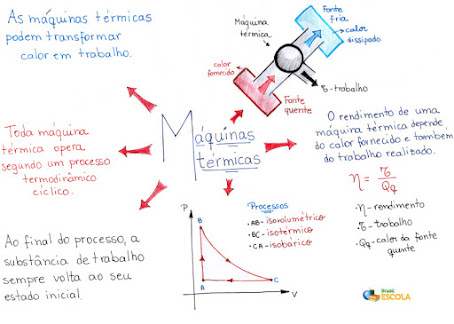 As máquinas térmicas
podem transformar
calor em trabalho.
Fonte
fria
calor
dissipado
Máquina
térmica
calor
fornecido
τ-trabalho
Fonte
quente
Toda máquina
térmica opera
segundo um processo
termodinâmico
cíclico.
Máquinas
térmicas
O rendimento de uma
máquina térmica depende
do calor fornecido e também
do trabalho realizado.
η = τ
Qq
η-rendimento
τ-trabalho
Qq-calor da fonte
quente
Ao final do processo, a
substância de trabalho
sempre volta ao seu
estado inicial.
P
B
A
C
V
Processos
•AB-isovolumétrico
•BC-isotérmico
•CA-isobárico
Brasil
ESCOLA